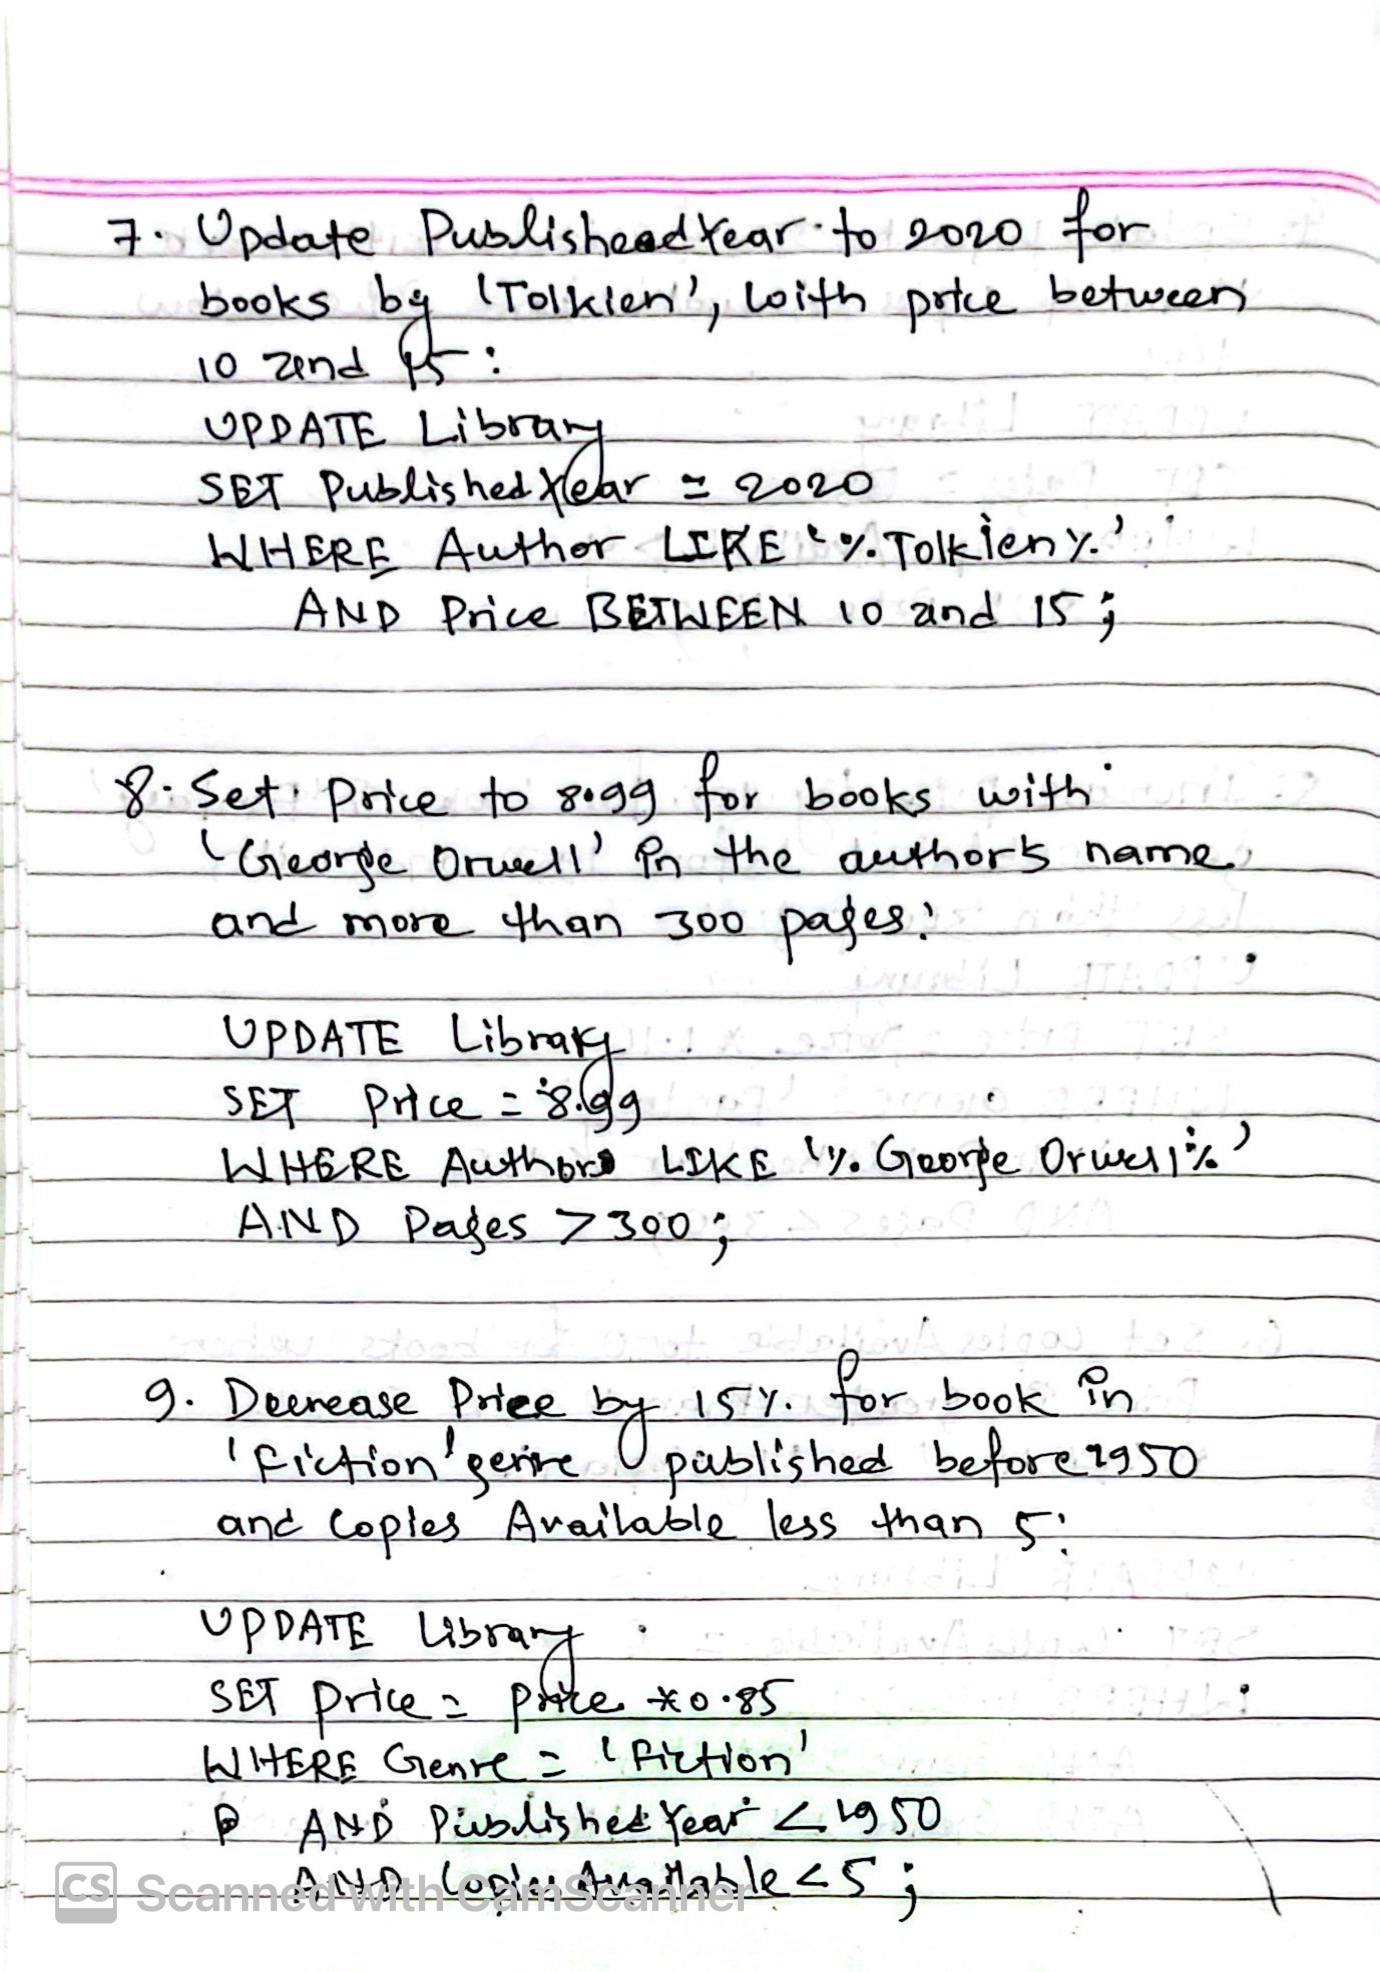 7. Update PublisheadYear to 2020 for
books by 'Tolkien', with price between
10 and 15 :
UPDATE Library
SET PublishedYear = 2020
WHERE Author LIKE '%Tolkien%'
AND Price BETWEEN 10 and 15 ;
8. Set Price to 8.99 for books with
'George Orwell' in the author's name
and more than 300 pages:
UPDATE Library
SET Price = 8.99
WHERE Author LIKE '%George Orwell%'
AND Pages > 300 ;
9. Decrease Price by 15% for book in
'Fiction' genre published before 1950
and Copies Available less than 5:
UPDATE Library
SET Price = Price * 0.85
WHERE Genre = 'Fiction'
AND PublishedYear < 1950
AND CopiesAvailable < 5 ;
CS Scanned with CamScanner